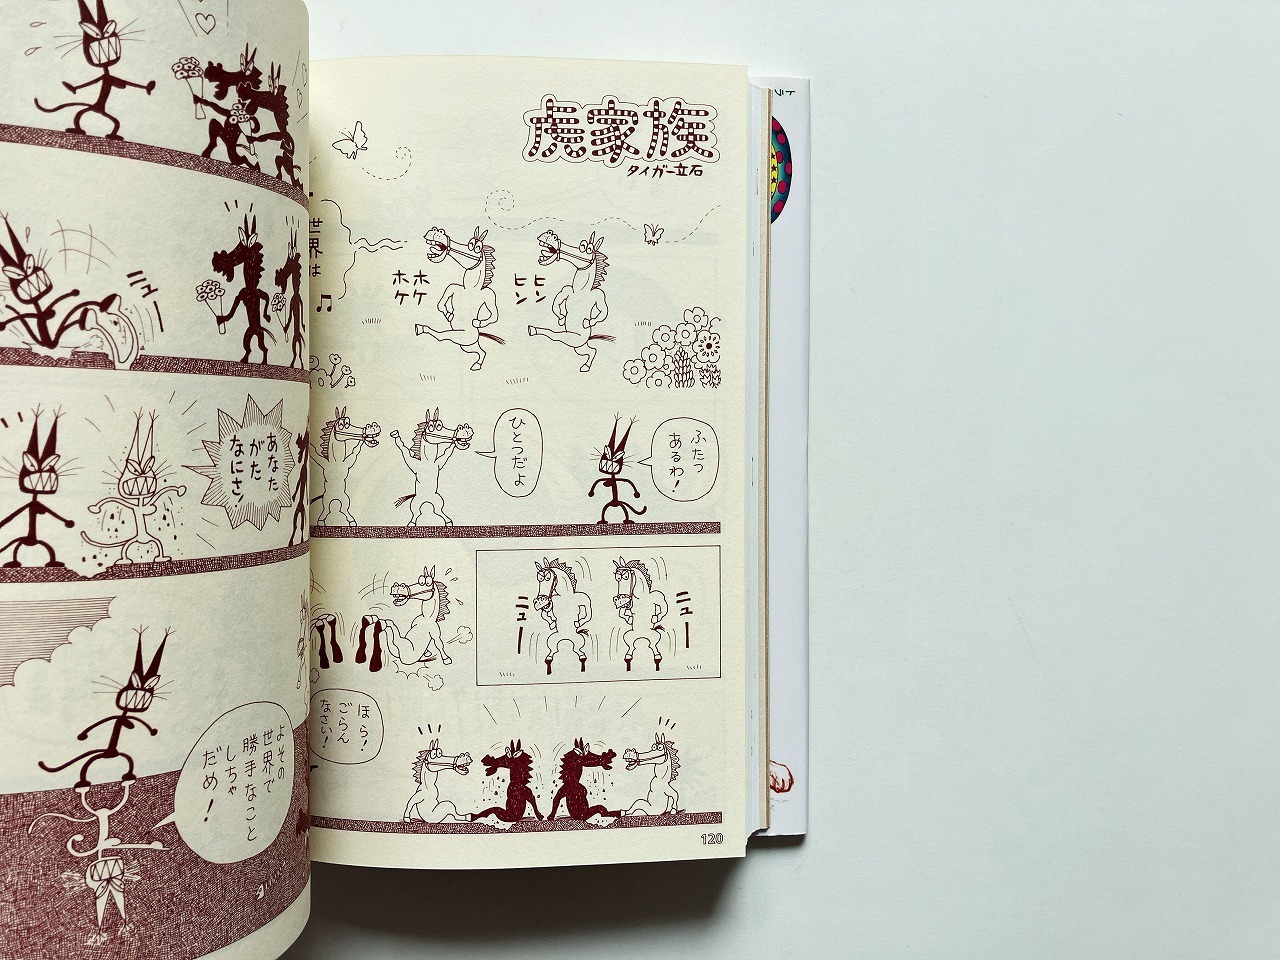 虎家族
タイガー立石
ヒヒ
ンン
ホホ
ケケ
世界は
ふたつ
あるわ!
ひとつだよ
ニュー
ニュー
ほら!
ごらん
なさい!
120
ニュー
あなた
がた
なにさ!
よその
世界で
勝手なこと
しちゃ
だめ!